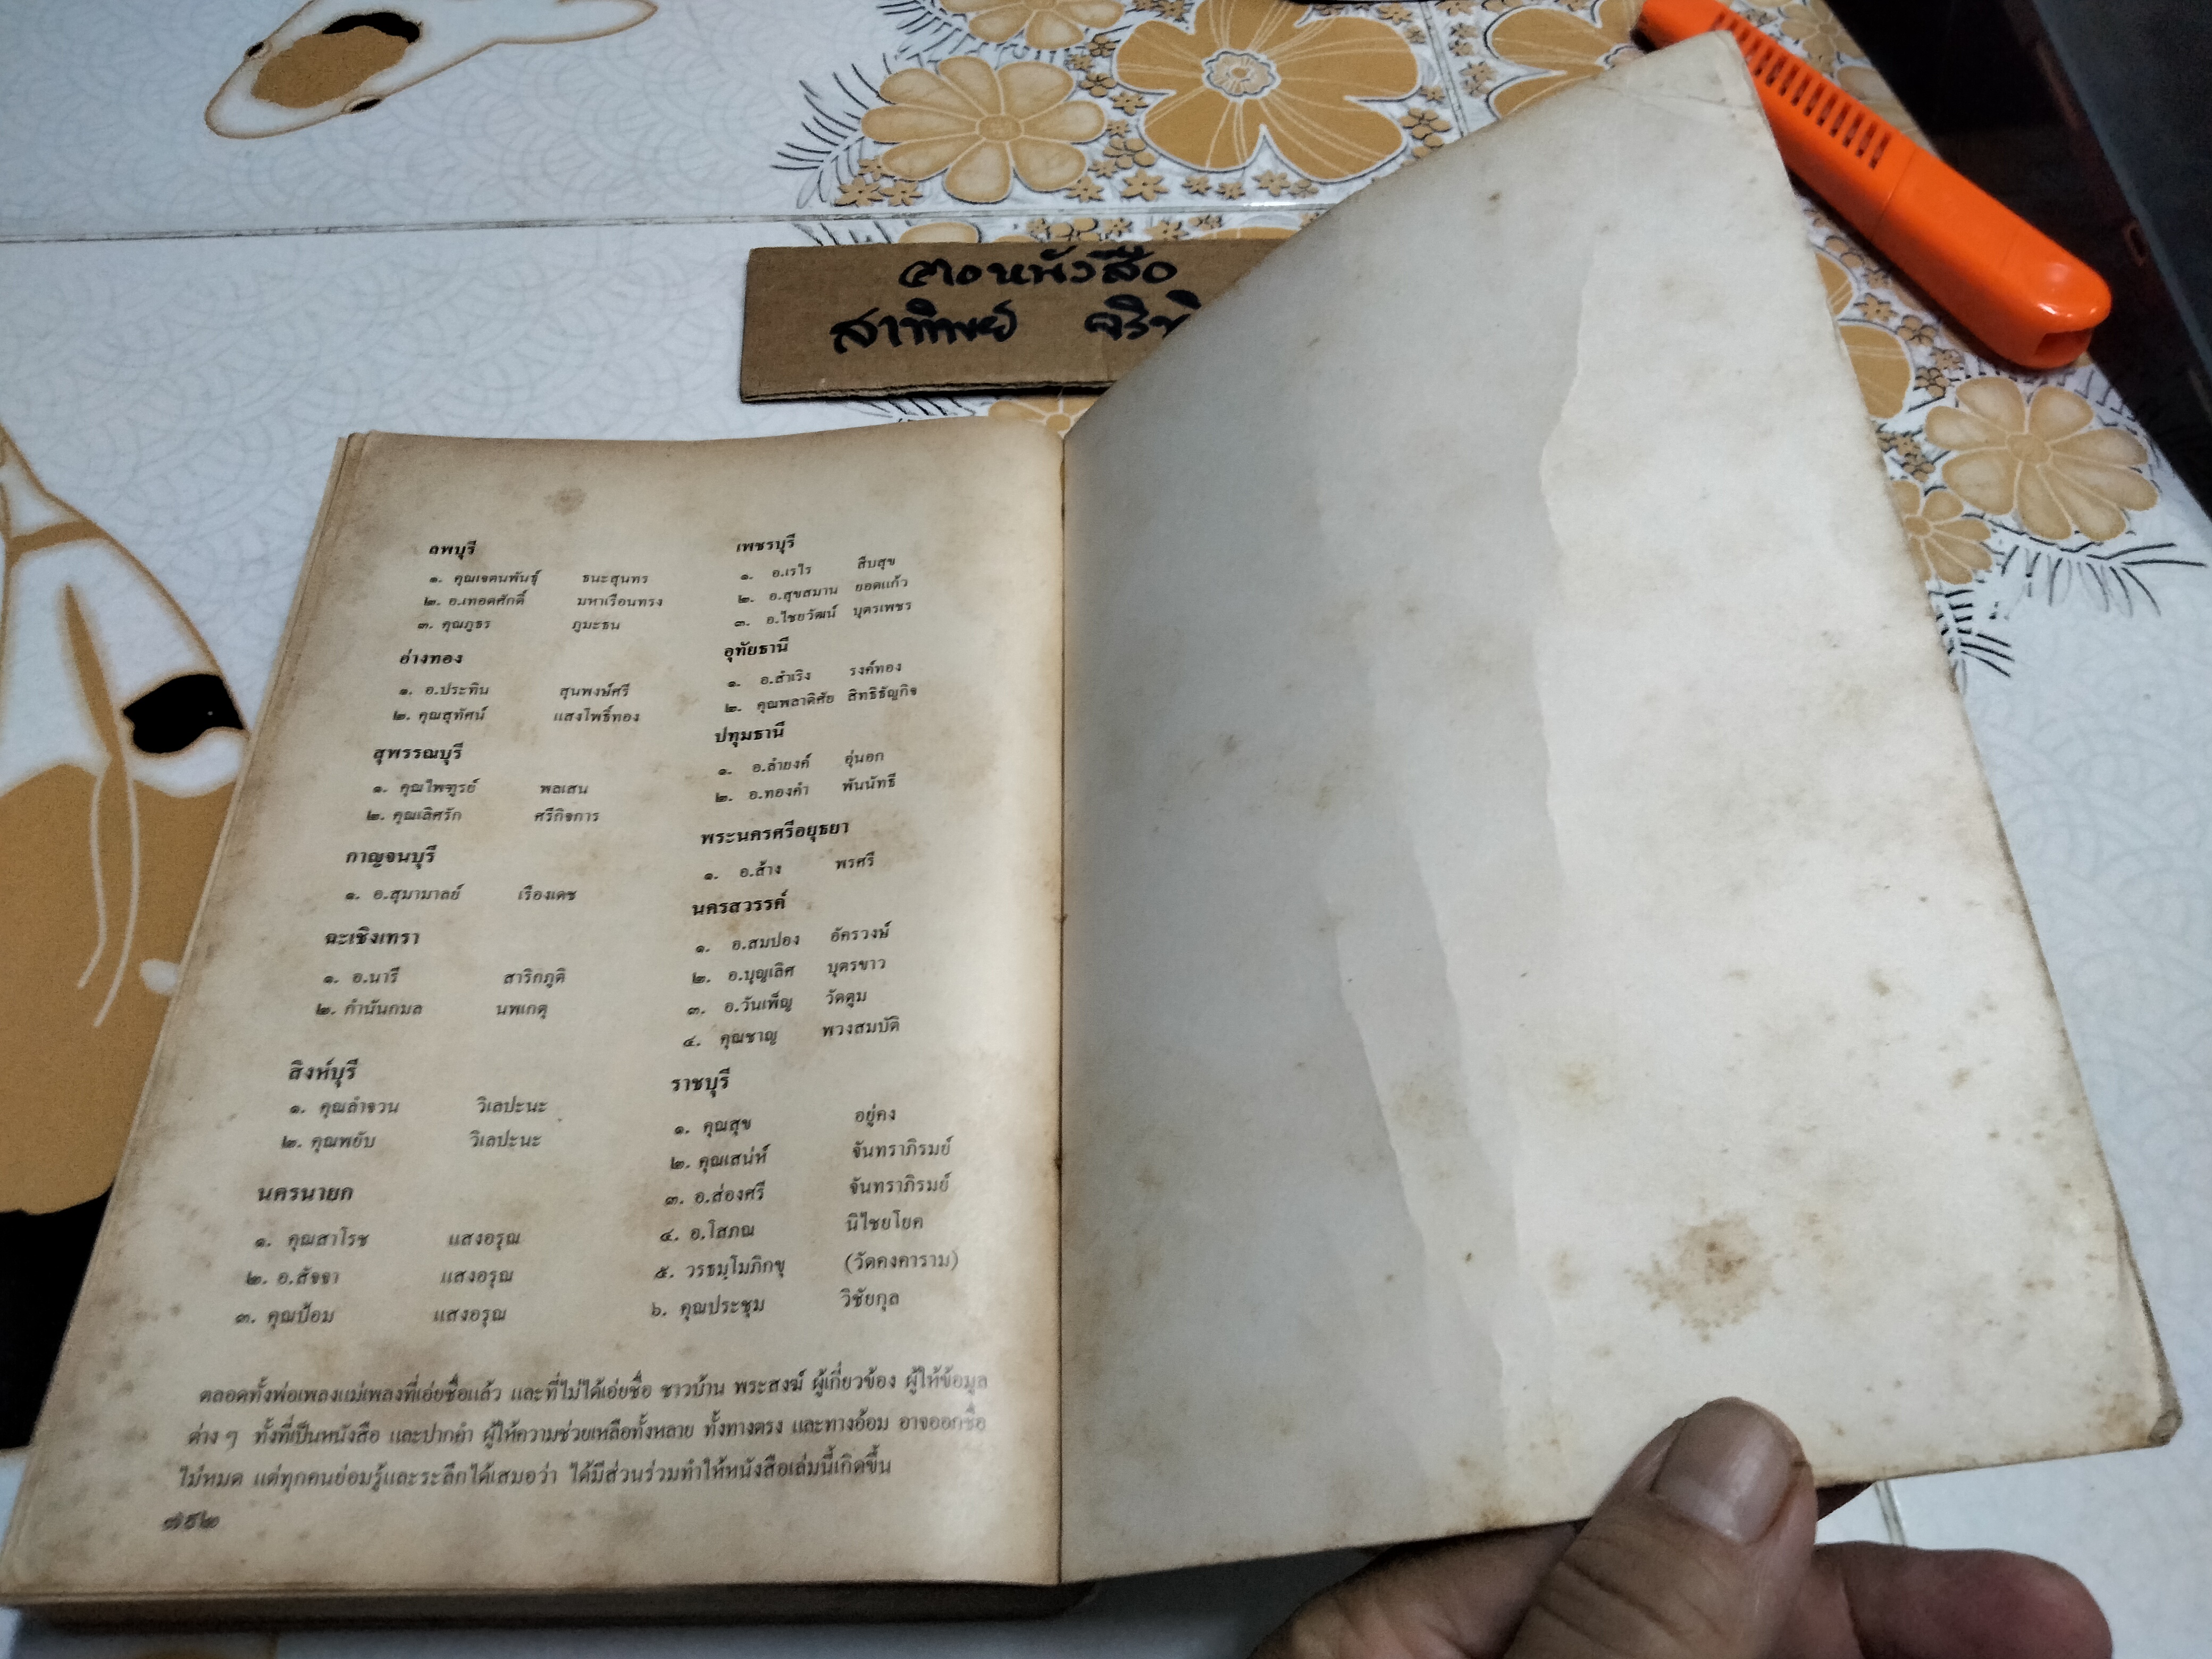 ฅอหนังสือ
สาทิพย์
ลพบุรี
๑. คุณเจตนพันธุ์ ธนะสุนทร
๒. อ.เทอดศักดิ์ มหาเรือนทรง
๓. คุณภูธร ภูมะธน
อ่างทอง
๑. อ.ประทิน สุนพงษ์ศรี
๒. คุณสุทัศน์ แสงโพธิ์ทอง
สุพรรณบุรี
๑. คุณไพฑูรย์ พลเสน
๒. คุณเลิศรัก ศรีกิจการ
กาญจนบุรี
๑. อ.สุมามาลย์ เรืองเดช
ฉะเชิงเทรา
๑. อ.นารี สาริกภูติ
๒. กำนันกมล นพเกตุ
สิงห์บุรี
๑. คุณลำจวน วิเลปะนะ
๒. คุณพยับ วิเลปะนะ
นครนายก
๑. คุณสาโรช แสงอรุณ
๒. อ.สัจจา แสงอรุณ
๓. คุณป้อม แสงอรุณ
เพชรบุรี
๑. อ.เรไร สืบสุข
๒. อ.สุขสมาน ยอดแก้ว
๓. อ.ไชยวัฒน์ บุตรเพชร
อุทัยธานี
๑. อ.สำเริง รงค์ทอง
๒. คุณพลาดิศัย สิทธิธัญกิจ
ปทุมธานี
๑. อ.ลำยงค์ อุ่นอก
๒. อ.ทองคำ พันนัทธี
พระนครศรีอยุธยา
๑. อ.ล้าง พรศรี
นครสวรรค์
๑. อ.สมปอง อัครวงษ์
๒. อ.บุญเลิศ บุตรขาว
๓. อ.วันเพ็ญ วัดตูม
๔. คุณชาญ พวงสมบัติ
ราชบุรี
๑. คุณสุข อยู่คง
๒. คุณเสน่ห์ จันทราภิรมย์
๓. อ.ส่องศรี จันทราภิรมย์
๔. อ.โสภณ นิไชยโยค
๕. วรธมฺโมภิกขุ (วัดคงคาราม)
๖. คุณประชุม วิชัยกุล
ตลอดทั้งพ่อเพลงแม่เพลงที่เอ่ยชื่อแล้ว และที่ไม่ได้เอ่ยชื่อ ชาวบ้าน พระสงฆ์ ผู้เกี่ยวข้อง ผู้ให้ข้อมูล
ต่าง ๆ ทั้งที่เป็นหนังสือ และปากคำ ผู้ให้ความช่วยเหลือทั้งหลาย ทั้งทางตรง และทางอ้อม อาจออกชื่อ
ไม่หมด แต่ทุกคนย่อมรู้และระลึกได้เสมอว่า ได้มีส่วนร่วมทำให้หนังสือเล่มนี้เกิดขึ้น